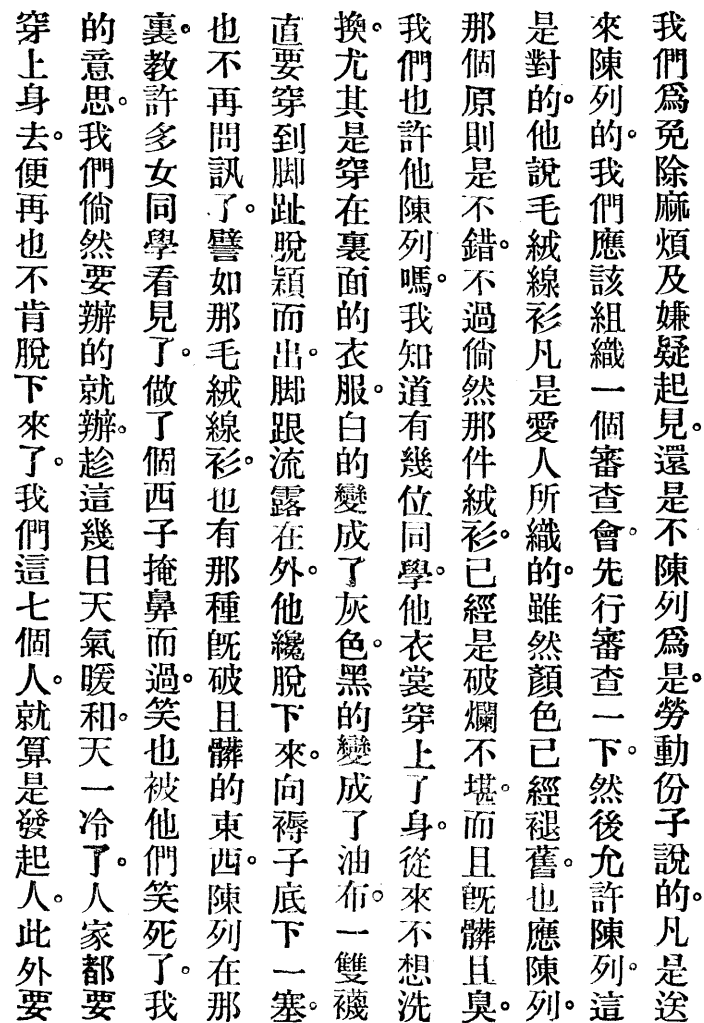 我們爲免除麻煩及嫌疑起見。還是不陳列爲是。勞動份子說的。凡是送
來陳列的。我們應該組織一個審查會。先行審查一下。然後允許陳列。這
是對的。他說毛絨線衫凡是愛人所織的。雖然顏色已經褪舊。也應陳列。
那個原則是不錯。不過倘然那件絨衫。已經是破爛不堪。而且旣髒且臭。
我們也許他陳列嗎。我知道有幾位同學。他衣裳穿上了身。從來不想洗
換。尤其是穿在裏面的衣服。白的變成了灰色。黑的變成了油布。一雙襪
直要穿到脚趾脫穎而出。脚跟流露在外。他纔脫下來。向褥子底下一塞。
也不再問訊了。譬如那毛絨線衫。也有那種旣破且髒的東西。陳列在那
裏。教許多女同學看見了。做了個西子掩鼻而過。笑也被他們笑死了。我
的意思。我們倘然要辦的就辦。趁這幾日天氣暖和。天一冷了。人家都要
穿上身去。便再也不肯脫下來了。我們這七個人。就算是發起人。此外要